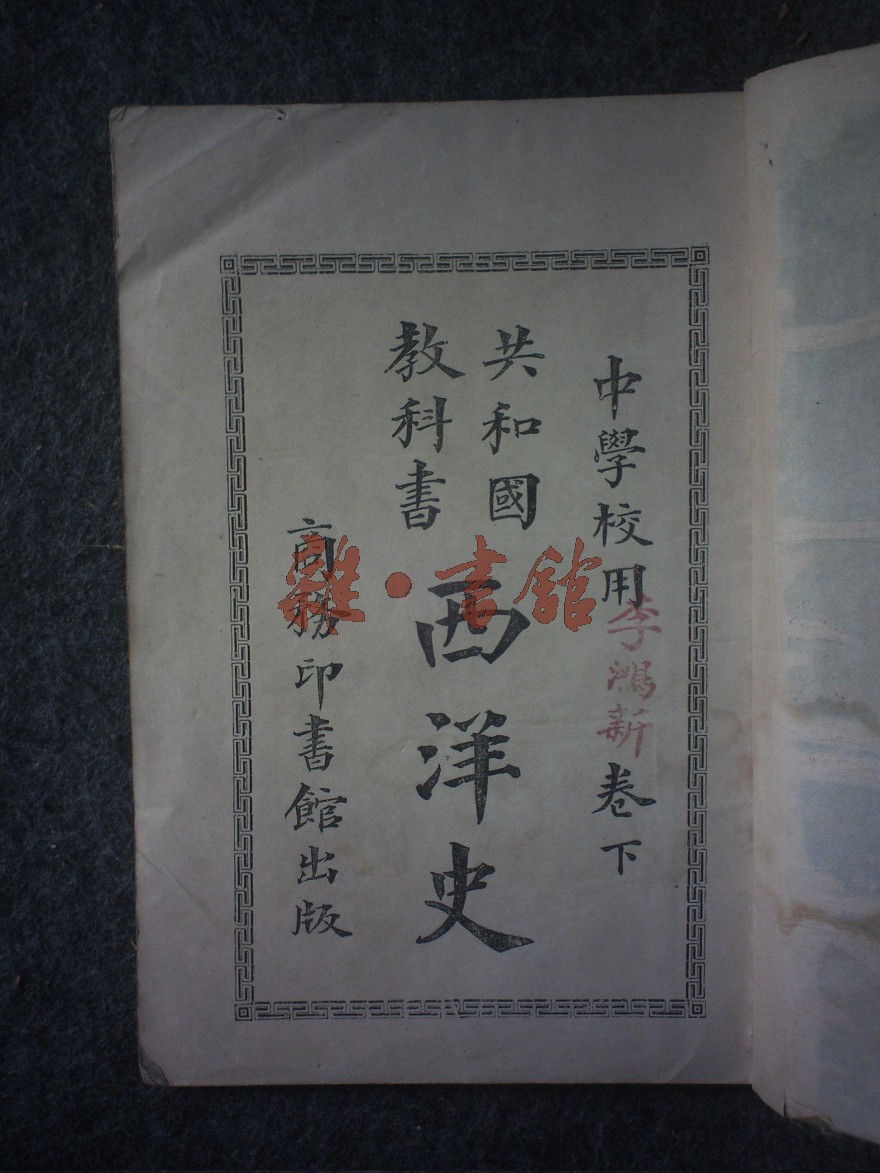 中學校用
李鴻新
卷下
共和國
教科書
西洋史
商務印書館出版
雜·書館